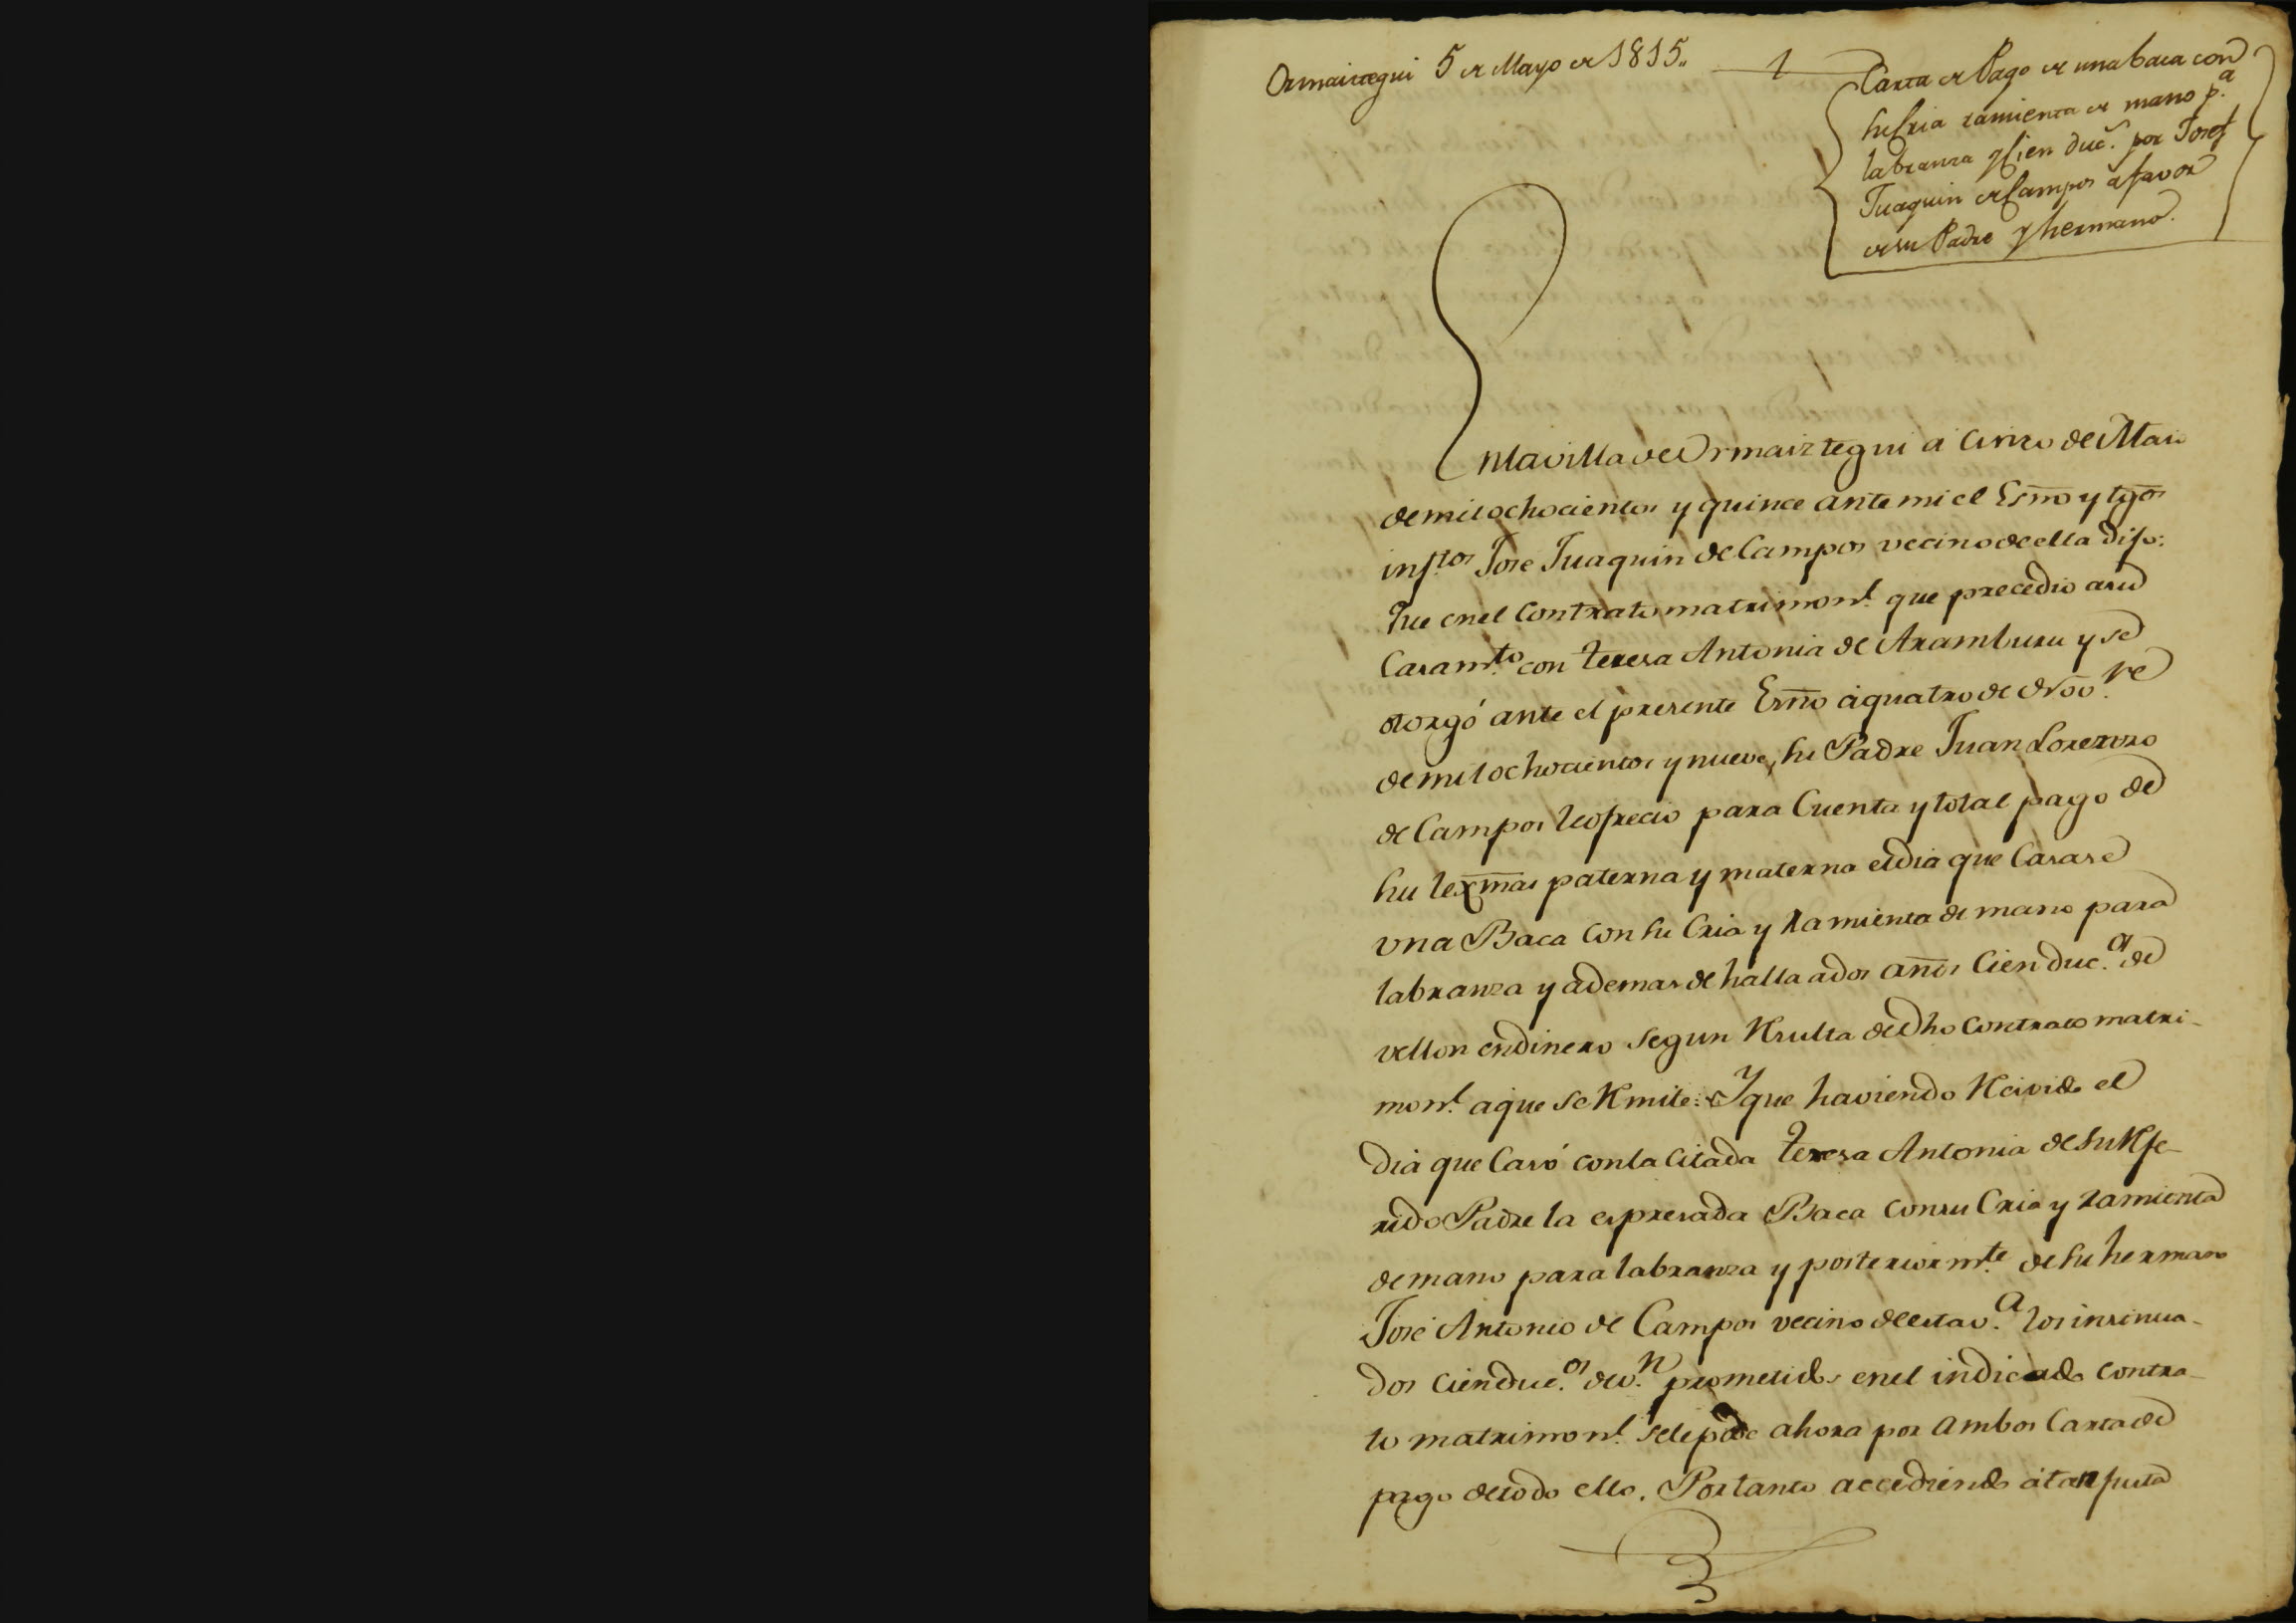 Ormaiztegui 5 de Mayo de 1815.. 1
Carta de Pago de una baca con
su Cria ramienta de mano p.a
labranza y Cien duc.s por Josef
Juaquin de Campos a favor
de su Padre y hermano.
En la villa de Ormaiztegui a cinco de Maio
de mil ochocientos y quince ante mi el Esño y tgõs
inf.tos Jose Juaquin de Campos vecino de ella dijo:
Que en el Contrato matrimon.l que precedio a su
Casam.to con teresa Antonia de Aramburu y se
otorgó ante el presente Esño à quatro de Nov.re
de mil ochocientos y nueve, su Padre Juan Lorenzo
de Campos le ofrecio para Cuenta y total pago de
su lexmas paterna y materna el dia que Casase
vna Baca con su Cria y ramienta de mano para
labranza y ademas de halla a dos años Cien duc.os de
vellon en dinero segun Rsulta de dho Contrato matri-
mon.l a que se Rmite: Y que haviendo Rcivido el
dia que Casó con la citada teresa Antonia de su Rfe-
rido Padre la espresada Baca con su Cria y ramienta
de mano para labranza y posteriorm.te de su hermano
José Antonio de Campos vecino de esta v.a los insinua-
dos Cien duc.os de v.n prometidos en el indicado contra-
to matrimon.l se le pide ahora por ambos Carta de
pago de todo ello. Por tanto accediendo à tan justa